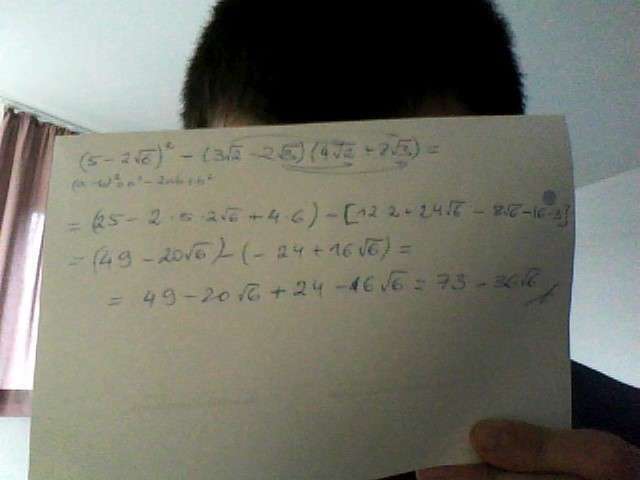 (5 - 2√6)² - (3√2 - 2√3)(4√2 + 8√3) =
(a - b)² = a² - 2ab + b²
= (25 - 2 · 5 · 2√6 + 4 · 6) - [12 · 2 + 24√6 - 8√6 - 16 · 3]
= (49 - 20√6) - (- 24 + 16√6) =
= 49 - 20√6 + 24 - 16√6 = 73 - 36√6